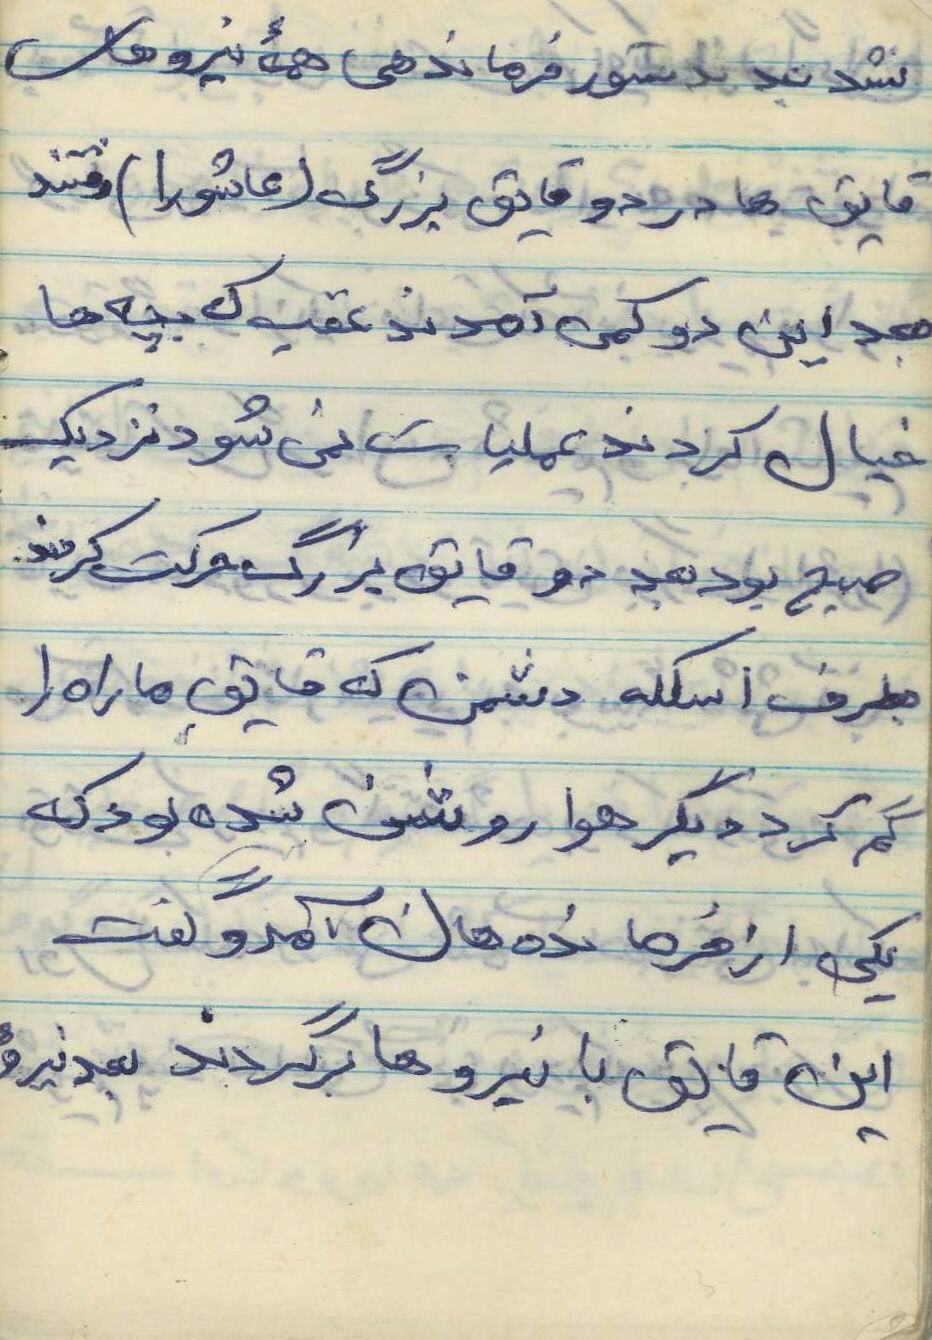 نشدند بدستور فرماندهی همۀ نیروهای
قایق ها در دو قایق بزرگ (عاشورا) رفتند
بعد این دو کمی آمدند عقب که بچه ها
خیال کردند عملیات نمی شود نزدیک
صبح بود بعد دو قایق بزرگ حرکت کردند
بطرف اسکله دشمن که قایق ما راه را
گم کرد دیگر هوا روشن شده بود که
یکی از فرمانده هان آمد و گفت
این قایق با نیروها برگردند بعد نیرو